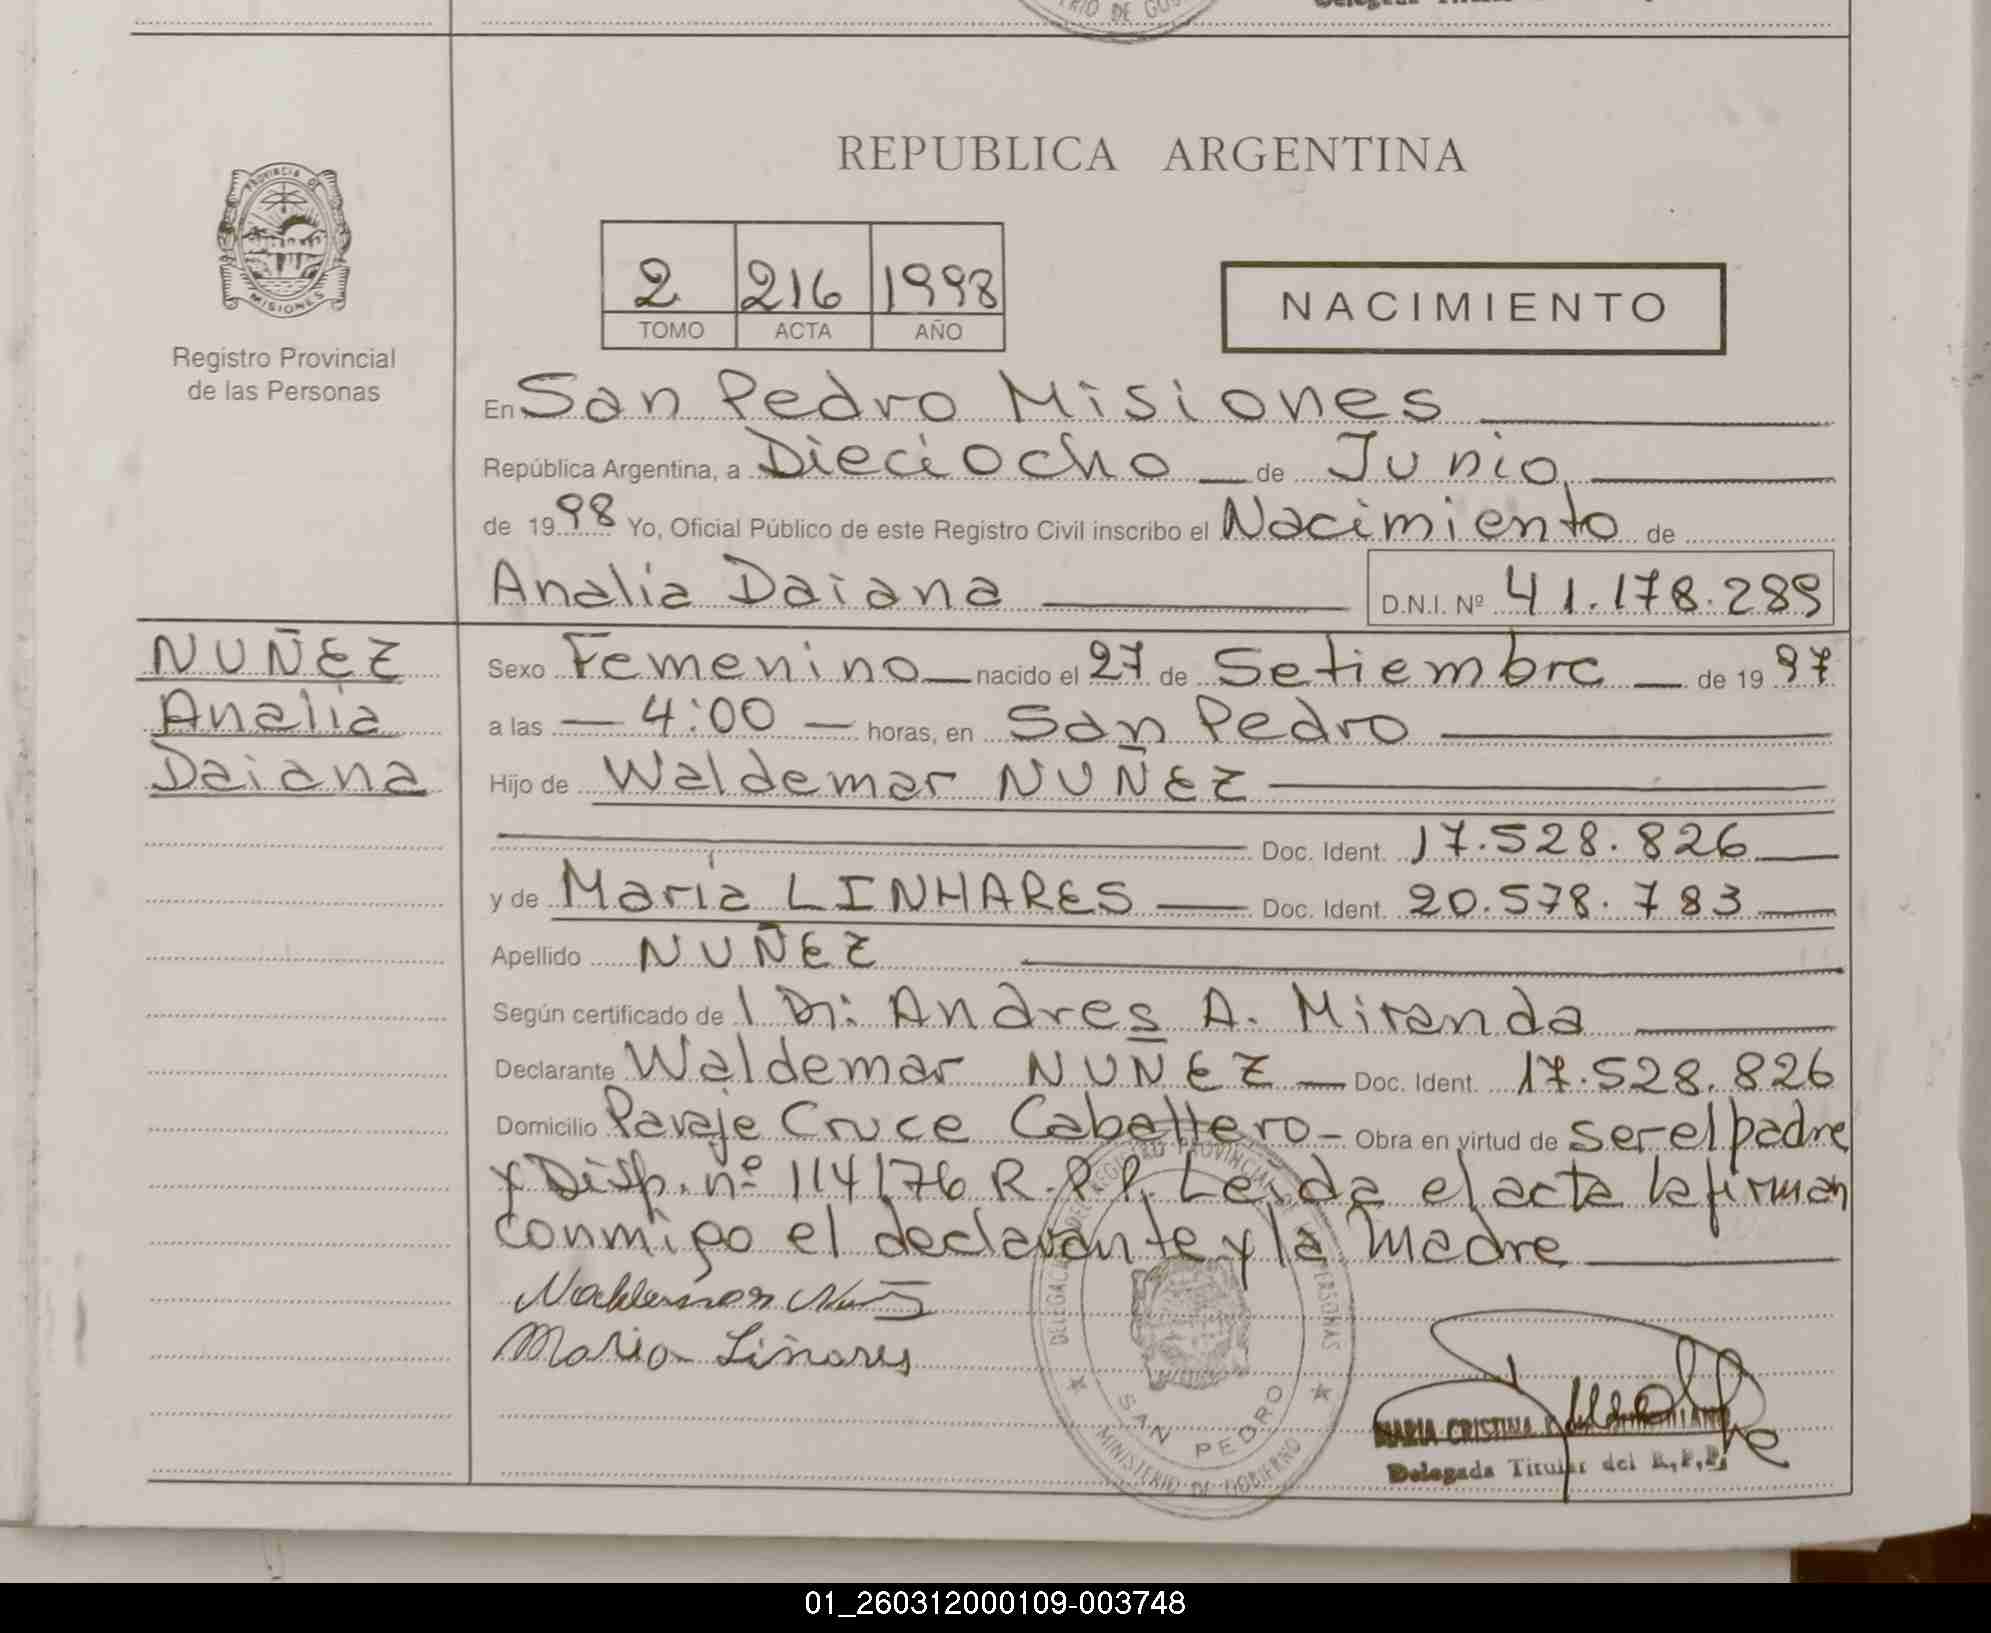 REPUBLICA ARGENTINA
PROVINCIA DE
MISIONES
Registro Provincial
de las Personas
2 216 1998
TOMO ACTA AÑO
NACIMIENTO
En San Pedro Misiones
República Argentina, a Dieciocho de Junio
de 1998 Yo, Oficial Público de este Registro Civil inscribo el Nacimiento de
Analia Daiana D.N.I. Nº 41.178.289
NUÑEZ
Analia
Daiana
Sexo Femenino nacido el 27 de Setiembre de 1997
a las 4:00 horas, en San Pedro
Hijo de Waldemar NUÑEZ
Doc. Ident. 17.528.826
y de María LINHARES Doc. Ident. 20.578.783
Apellido NUÑEZ
Según certificado de l Dr: Andres A. Miranda
Declarante Waldemar NUÑEZ Doc. Ident. 17.528.826
Domicilio Paraje Cruce Caballero - Obra en virtud de ser el padre
y Disp. nº 114/76 R.P.P. Leida el acta la firman
conmigo el declarante y la madre
Waldemar
Maria Liñares
DELEGACION DEL REGISTRO PROVINCIAL DE LAS PERSONAS
SAN PEDRO
MINISTERIO DE GOBIERNO
MARIA CRISTINA
Delegada Titular del R.P.P.
01_260312000109-003748